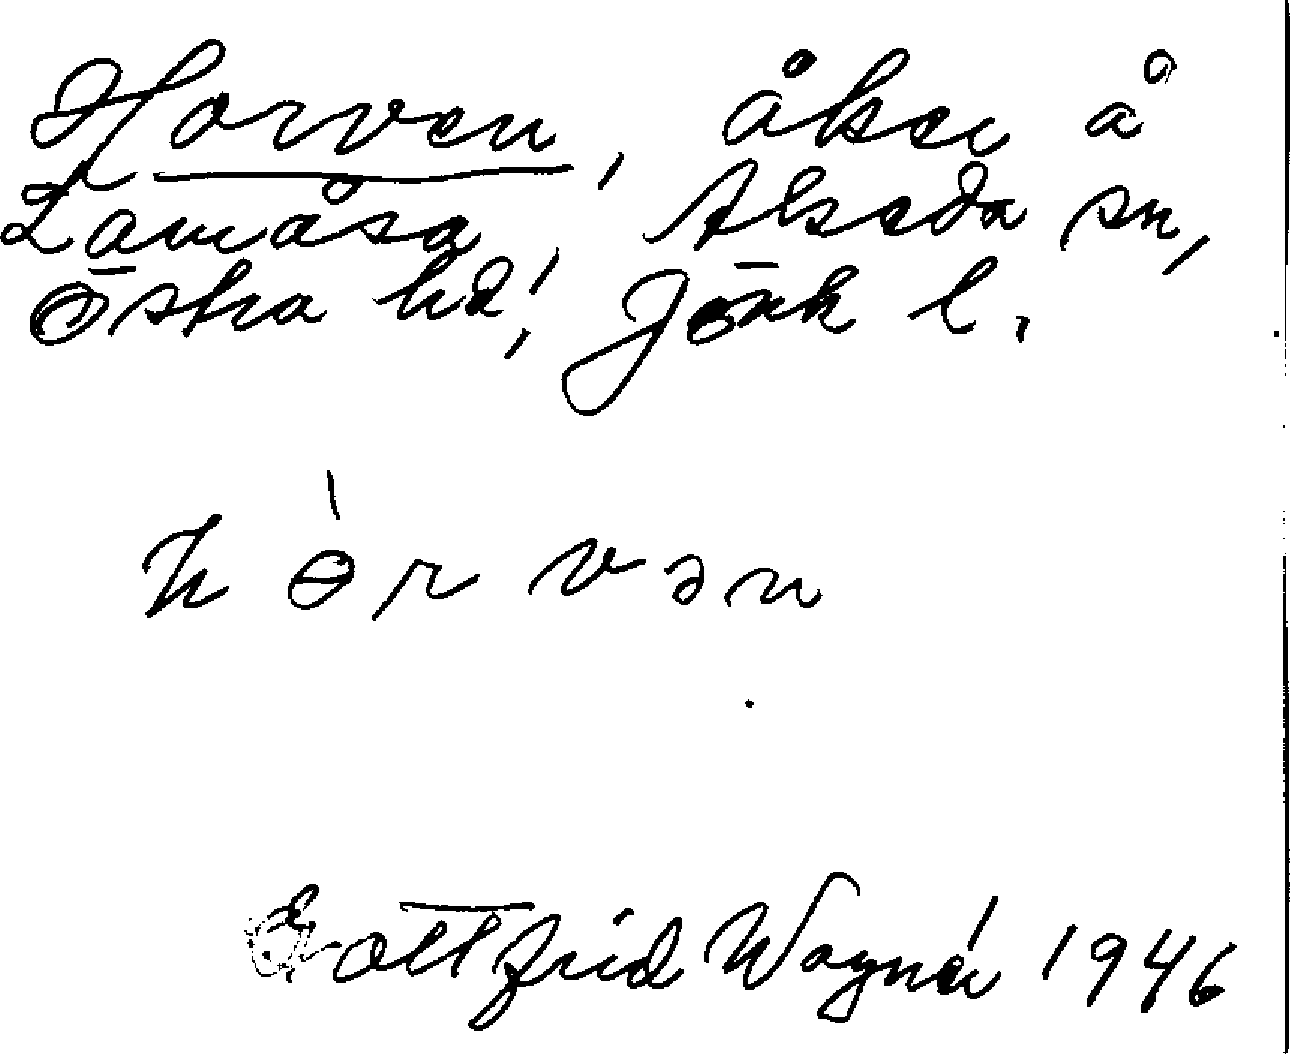 Horven, åker å
Lamåsa, Alseda sn,
Östra hd, Jönk l.
h ɵ̀ r v ə n
Gottfrid Wagnér 1946